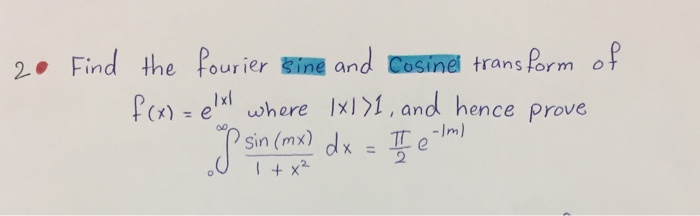 2. Find the fourier sine and Cosine transform of
f(x) = e^|x| where |x|>1, and hence prove
∫₀^∞ sin(mx) / (1 + x²) dx = π/2 e^-|m|